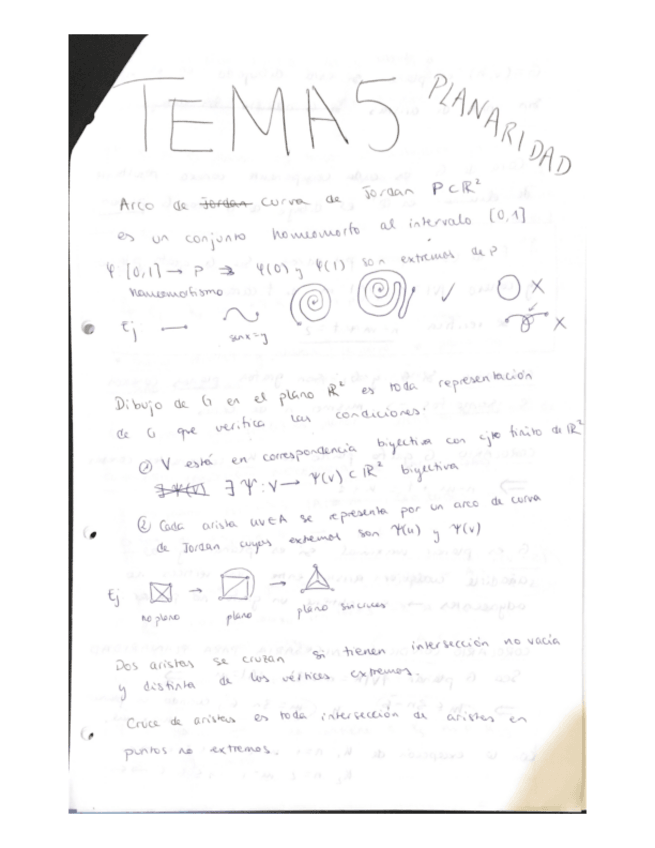 TEMA 5 PLANARIDAD
Arco de Jordan curva de Jordan P⊂ℝ²
es un conjunto homeomorfo al intervalo [0,1]
Ψ [0,1] → P ⇒ Ψ(0) y Ψ(1) son extremos de P
homeomorfismo
Ej
senx=y
Dibujo de G en el plano ℝ² es toda representación
de G que verifica las condiciones:
① V está en correspondencia biyectiva con cjto finito de ℝ²
∃ Ψ(V) ∃ Ψ: V → Ψ(V) ⊂ ℝ² biyectiva
② Cada arista uv∈A se representa por un arco de curva
de Jordan cuyos extremos son Ψ(u) y Ψ(v)
Ej → →
no plano plano plano sin cruces
Dos aristas se cruzan si tienen intersección no vacía
y distinta de los vértices extremos.
Cruce de aristas es toda intersección de aristas en
puntos no extremos.